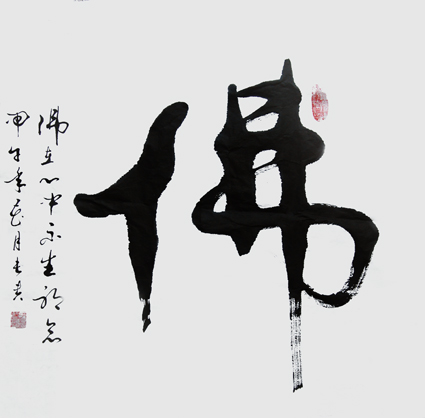 佛
佛在心中不生邪念
甲午年月